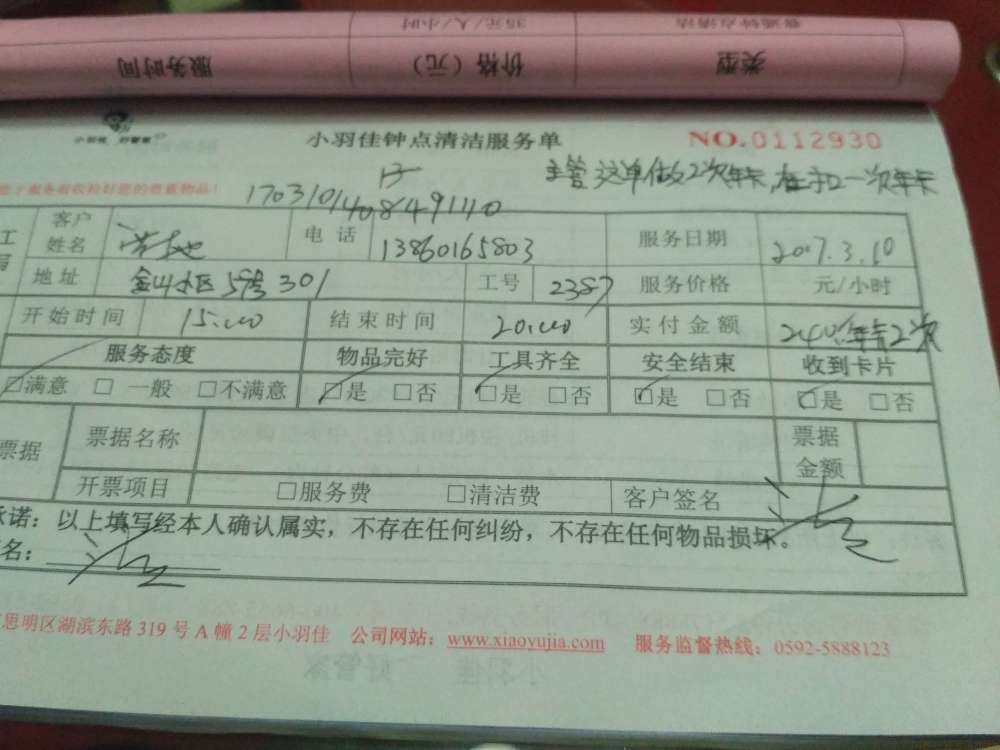 普通钟点清洁 35元/人/小时
类型 价格（元） 服务时间
小羽佳 好管家
小羽佳钟点清洁服务单 NO.0112930
主管 这单做2次年卡,在扣一次年卡
贵重物品!
17031014084911
客户姓名 电话 13860165803 服务日期 2007.3.10
地址 金山小区5号301 工号 2387 服务价格 元/小时
开始时间 15.00 结束时间 20.00 实付金额 240 年卡2次
服务态度 物品完好 工具齐全 安全结束 收到卡片
□满意 □一般 □不满意 □是 □否 □是 □否 □是 □否 □是 □否
票据 票据名称 票据金额
开票项目 □服务费 □清洁费 客户签名
承诺：以上填写经本人确认属实，不存在任何纠纷，不存在任何物品损坏。
名：
思明区湖滨东路 319 号 A 幢 2 层小羽佳 公司网站：www.xiaoyujia.com 服务监督热线：0592-5888123